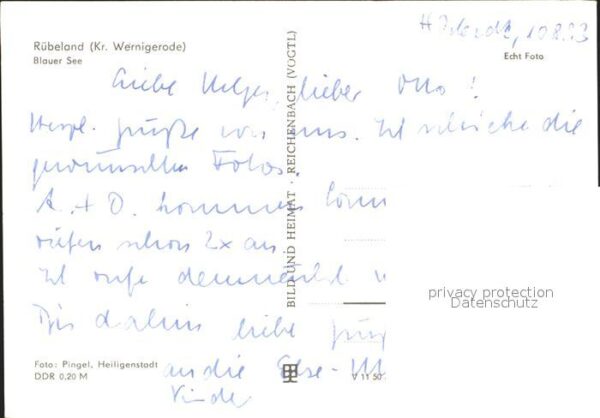 Rübeland (Kr. Wernigerode)
Blauer See
10.8.83
Echt Foto
Liebe Helga, lieber Otto!
Herzl. Grüße von uns. Ich schicke die
gewünschten Fotos.
A. + D. kommen
riefen schon 2x an.
Ich rufe demnächst
Bis dahin liebe
an die
Kinder
BILD UND HEIMAT · REICHENBACH (VOGTL)
privacy protection
Datenschutz
Foto: Pingel, Heiligenstadt
DDR 0,20 M
V 11 50